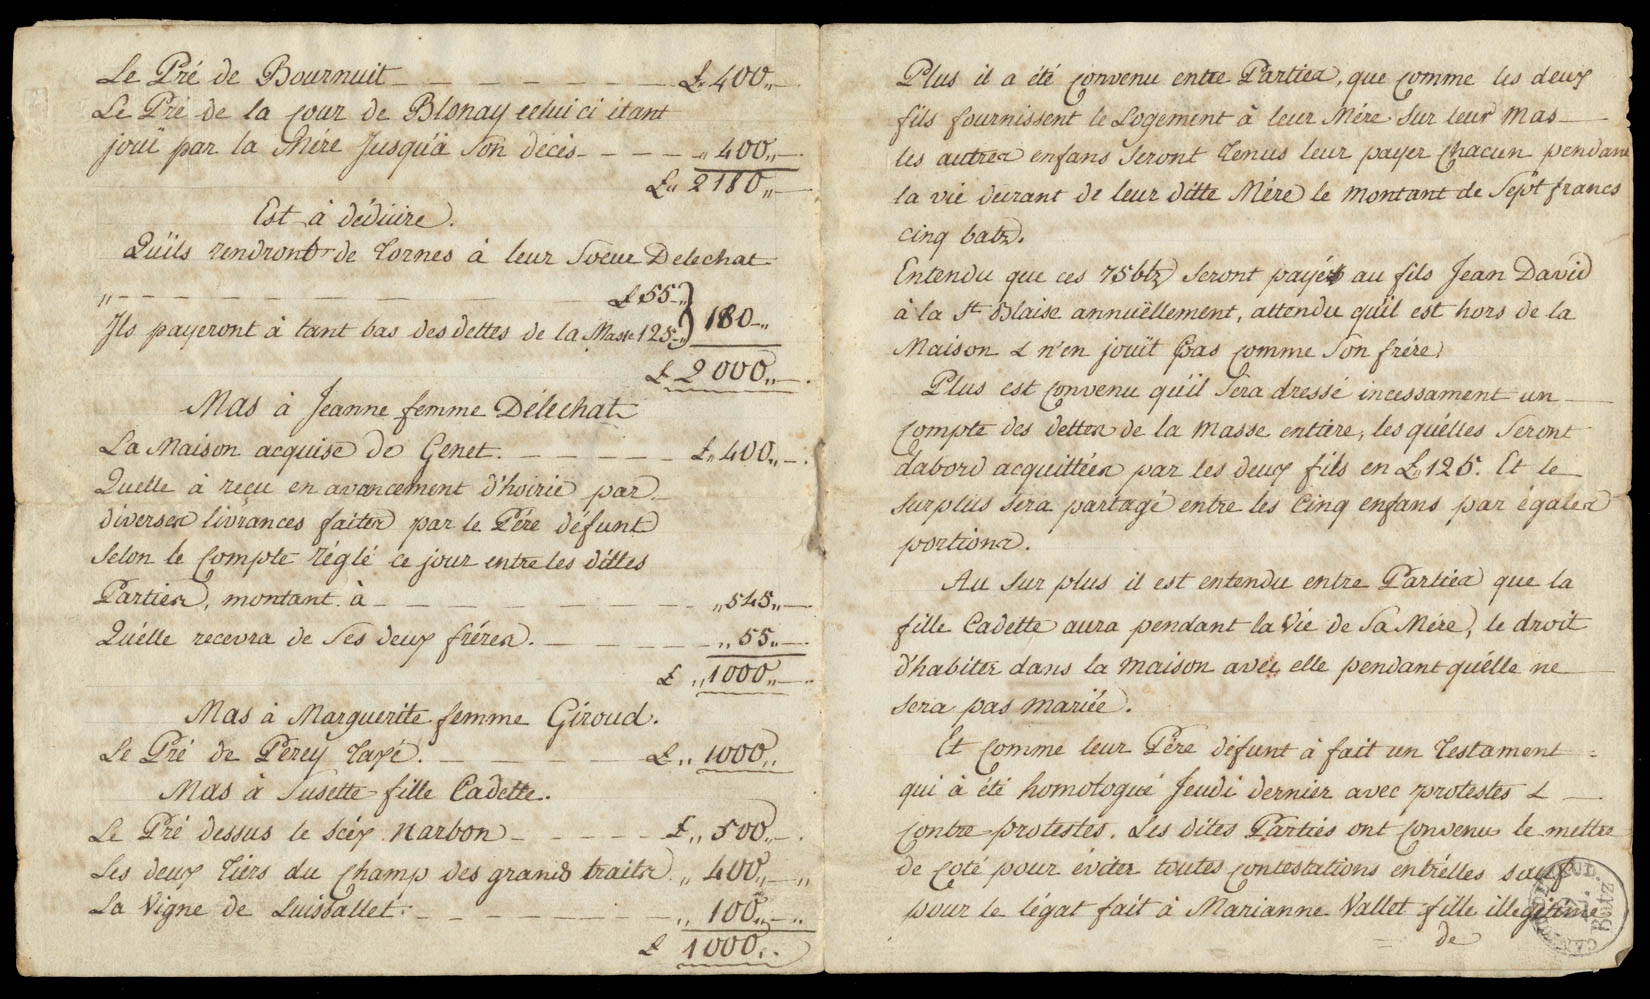 Le Pré de Bournuit - - - - - - - £ 400 „ -
Le Pré de la Cour de Blonay celui ci étant
joui par la Mére Jusqu'à Son décès - - - - „ 400 „ -
£ „ 2180 „ -
Est à déduire.
Qu'ils rendront de Tornes à leur Soeur Delechat
„ - - - - - - - - - £ 55 - „
Ils payeront à tant bas des dettes de la Masse 125 - „ } 180 - „
£ 2000 „ - .
Mas à Jeanne femme Délechat
La Maison acquise de Genet. - - - - - £ „ 400 „ - .
Quelle à reçu en avancement d'hoirie par
diverses livrances faites par le Pére défunt
Selon le Compte réglé ce jour entre les dittes
Parties, montant à - - - - - - - - „ 545 „ -
Qu'elle recevra de Ses deux fréres. - - - - - „ 55 „ -
£ „ 1000 „ - .
Mas à Marguerite femme Giroud.
Le Pré de Perey Taxé. - - - - - £ „ 1000 „
Mas à Susette fille Cadette.
Le Pré dessus le Scex Narbon - - - - - £ „ 500 „ - .
Les deux Tiers du Champ des grands traits „ 400 „ - „
La Vigne de Luissallet. - - - - - - „ 100 „ - „
£ 1000 „ .
Plus il a été Convenu entre Parties, que Comme les deux
fils fournissent le Logement à leur Mére Sur leur Mas -
les autres enfans Seront Tenus leur payer Chacun pendant
la vie durant de leur ditte Mére le montant de Sept francs
cinq batz.
Entendu que ces 75 btz Seront payés au fils Jean David
à la St Blaise annuëllement, attendu qu'il est hors de la
Maison & n'en jouit pas Comme Son frére.
Plus est Convenu qu'il Sera dressé incessament un -
Compte des dettes de la masse entiére, lesquélles Seront
dabord acquittées par les deux fils en £ 125. Et le -
surplus sera partagé entre les Cinq enfans par égales
portions.
Au Sur plus il est entendu entre Parties que la
fille Cadette aura pendant la Vie de Sa Mére, le droit
d'habiter dans la maison avec elle pendant qu'elle ne -
sera pas mariée.
Et Comme leur Pére défunt à fait un Testament =
qui à été homologué Jeudi dernier avec protestes & -
Contre-protestes. Les dites Parties ont Convenu le mettre
de Coté pour éviter toutes Contestations entr'elles sauf
pour le légat fait à Marianne Vallet fille illegitime
de
Batz